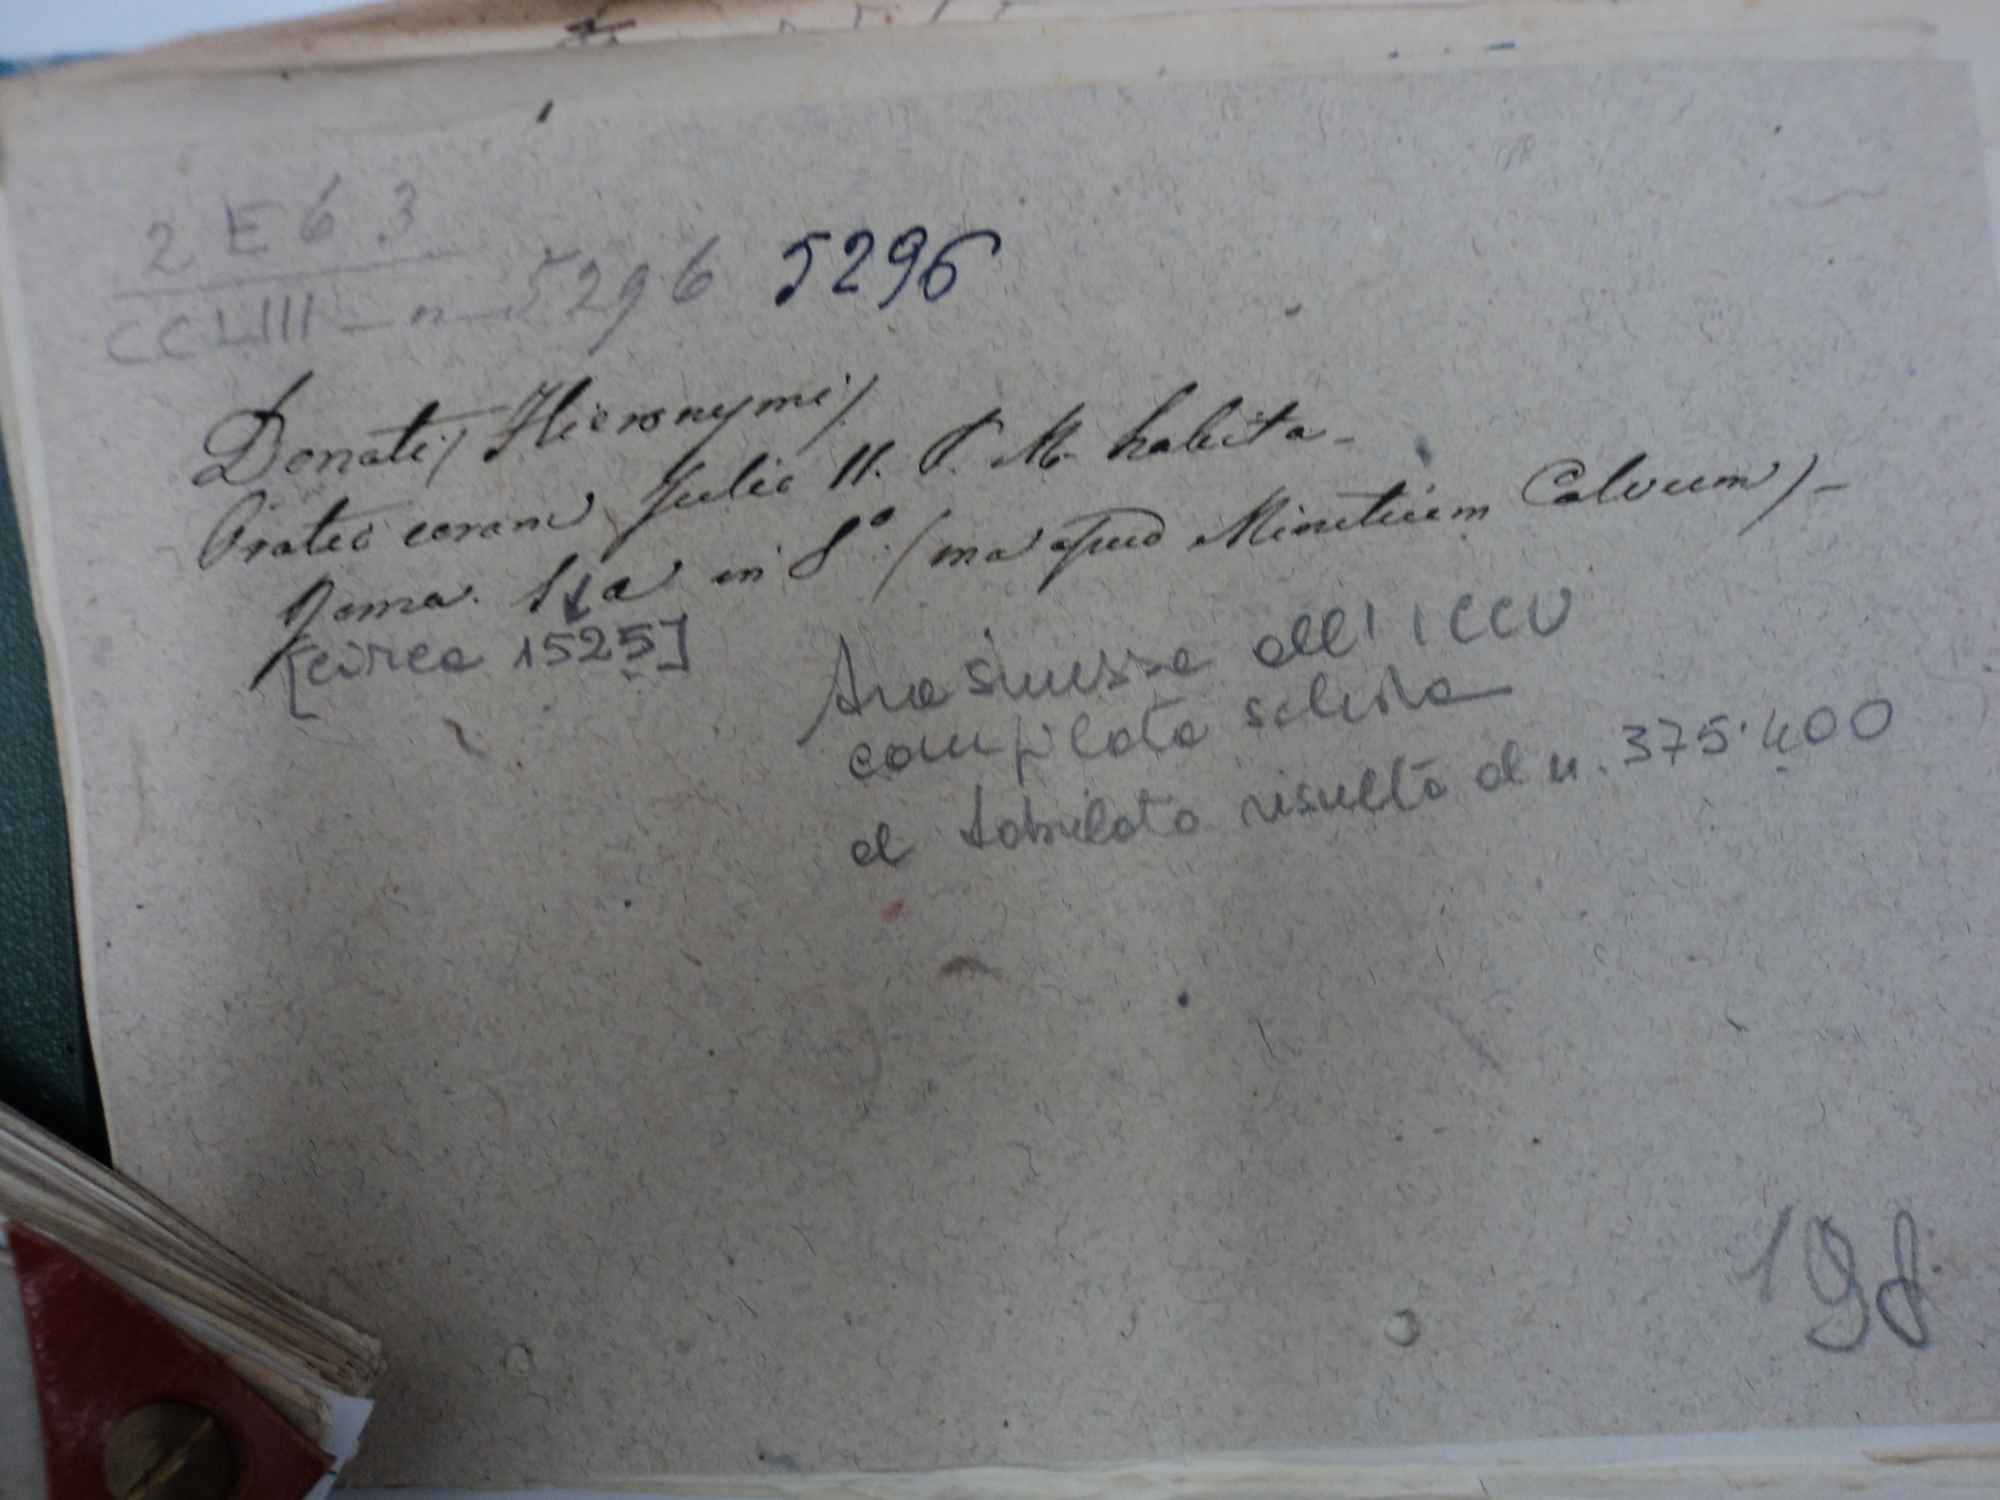 2 E 6 3
CCLIII - n - 5296 5296
Donati / Hieronymi /
Oratio coram Julio II. P. M. habita -
Roma. S. a in 8° (ma apud Minitium Calvum) -
[circa 1525]
trasmessa all'ICCU
compilata scheda
al tabulato risulta al n. 375.400
198